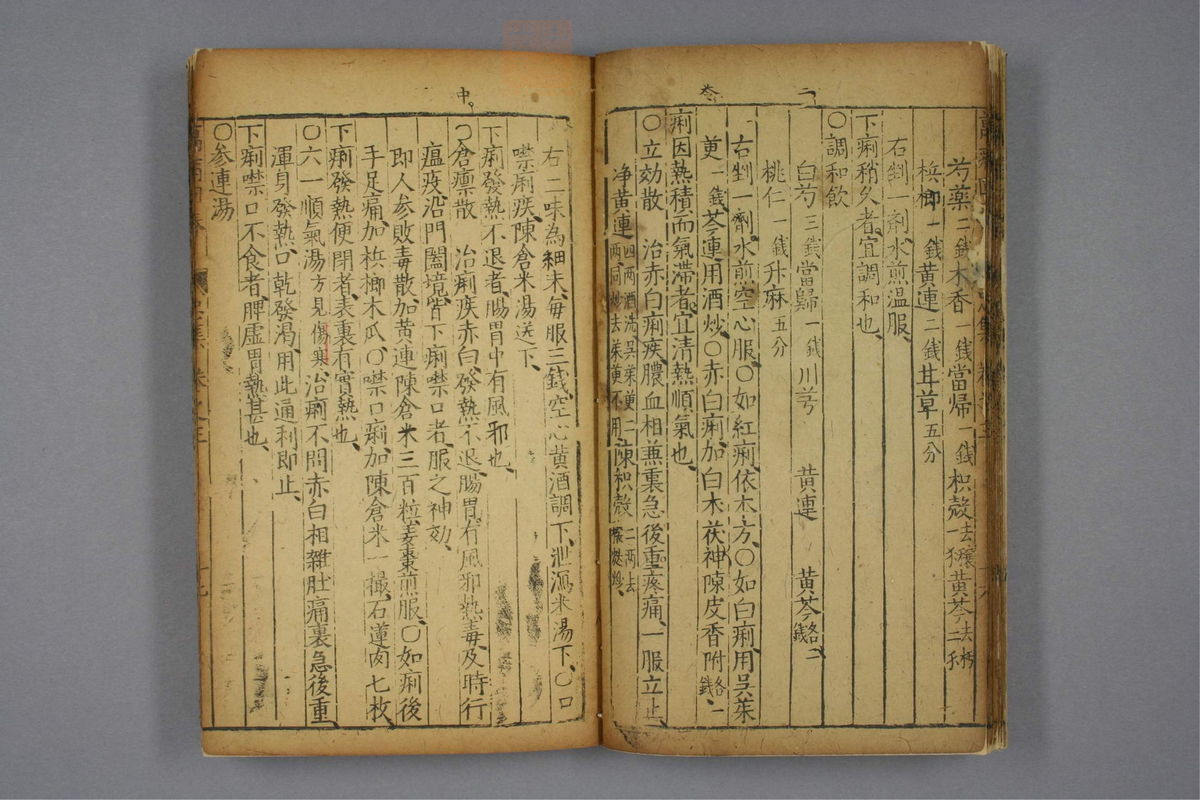 芍藥二錢木香一錢當帰一錢枳殼去穰一錢黃芩去朽二錢
梹榔一錢黃連二錢甘草五分
右剉一劑水煎温服
下痢稍久者宜調和也
○調和飲
白芍三錢當歸一錢川芎 黃連 黃芩各二錢
桃仁一錢升麻五分
右剉一劑水煎空心服○如紅痢依本方○如白痢用吳茱
萸一錢芩連用酒炒○赤白痢加白朮茯神陳皮香附各一錢
痢因熱積而氣滯者宜清熱順氣也
○立効散 治赤白痢疾膿血相兼裏急後重疼痛一服立止
净黃連四兩酒洗吳茱萸二兩同炒去茱萸不用陳枳殼二兩去穰麩炒
右二味為細末每服三錢空心黃酒調下泄瀉米湯下○口
噤痢疾陳倉米湯送下
下痢發熱不退者腸胃中有風邪也
○倉廪散 治痢疾赤白發熱不退腸胃有風邪熱毒及時行
瘟疫沿門闔境皆下痢噤口者服之神効
即人参敗毒散加黃連陳倉米三百粒姜棗煎服○如痢後
手足痛加梹榔木瓜○噤口痢加陳倉米一撮石蓮肉七枚
下痢發熱便閉者表裏有實熱也
○六一順氣湯方見傷寒治痢不問赤白相雜肚痛裏急後重
渾身發熱口乾發渴用此通利即止
下痢噤口不食者脾虛胃熱甚也
○参連湯
中